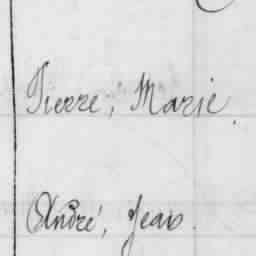 Pierre, Marie.
André, Jean.